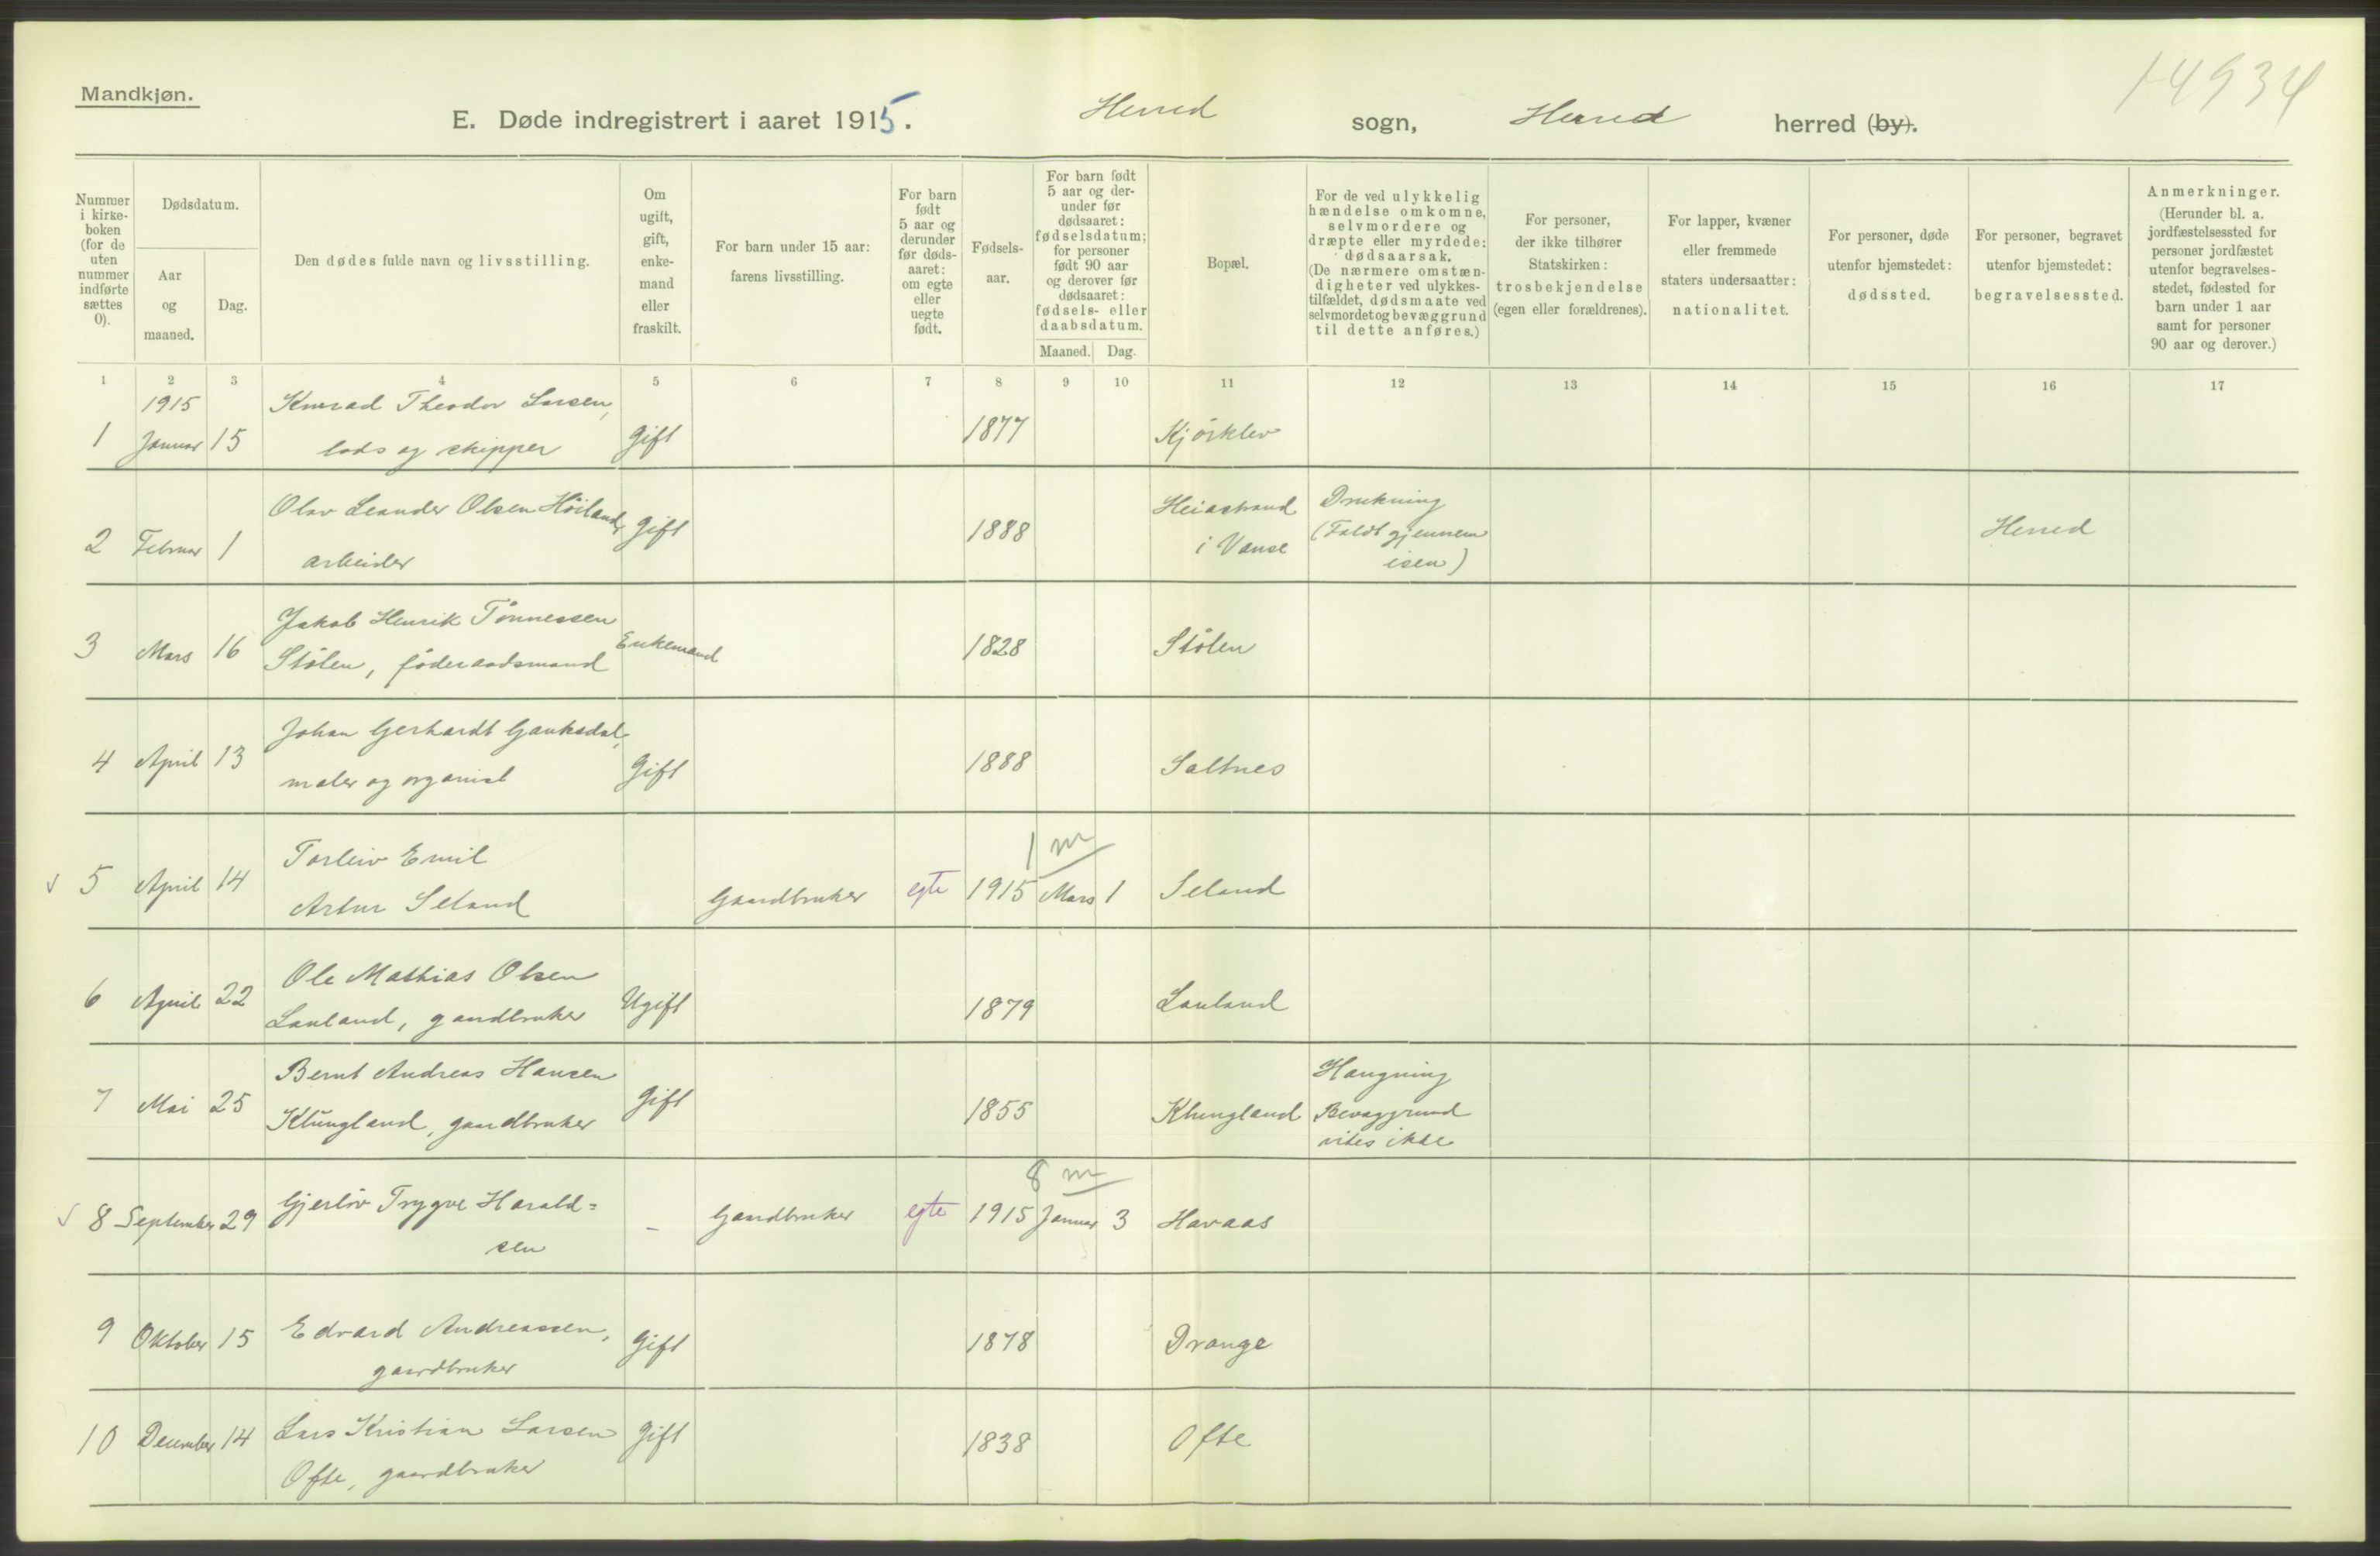 14934
Mandkjøn.
E. Døde indregistrert i aaret 1915. Herred sogn, Herred herred (by).
Nummer i kirke-boken (for de uten nummer indførte sættes 0).
Dødsdatum.
Aar og maaned.
Dag.
Den dødes fulde navn og livsstilling.
Om ugift, gift, enke-mand eller fraskilt.
For barn under 15 aar: farens livsstilling.
For barn født 5 aar og derunder før døds-aaret: om egte eller uegte født.
Fødsels-aar.
For barn født 5 aar og der-under før dødsaaret: fødselsdatum; for personer født 90 aar og derover før dødsaaret: fødsels- eller daabsdatum.
Maaned. Dag.
Bopæl.
For de ved ulykkelig hændelse omkomne, selvmordere og dræpte eller myrdede: dødsaarsak. (De nærmere omstæn-digheter ved ulykkes-tilfældet, dødsmaate ved selvmordet og bevæggrund til dette anføres.)
For personer, der ikke tilhører Statskirken: trosbekjendelse (egen eller forældrenes).
For lapper, kvæner eller fremmede staters undersaatter: nationalitet.
For personer, døde utenfor hjemstedet: dødssted.
For personer, begravet utenfor hjemstedet: begravelsessted.
Anmerkninger. (Herunder bl. a. jordfæstelsessted for personer jordfæstet utenfor begravelses-stedet, fødested for barn under 1 aar samt for personer 90 aar og derover.)
1 2 3 4 5 6 7 8 9 10 11 12 13 14 15 16 17
1915 Konrad Theodor Larsen,
1 Januar 15 lods og skipper Gift 1877 Kjørklev
Olav Leander Olsen Höiland, Heiastrand Drukning
2 Februar 1 Gift 1888 i Vanse (Faldt gjennem Herred
arbeider isen)
Jakob Henrik Tönnessen
3 Mars 16 Stölen, föderaadsmand Enkemand 1828 Stölen
Johan Gerhardt Gauksdal,
4 April 13 maler og organist Gift 1888 Saltnes
Torleiv Emil 1 m
5 April 14 Artur Seland Gaardbruker egte 1915 Mars 1 Seland
Ole Mathias Olsen
6 April 22 Lauland, gaardbruker Ugift 1879 Lauland
Bernt Andreas Hansen Hangning
7 Mai 25 Klungland, gaardbruker Gift 1855 Klungland Bevæggrund
vites ikke
8 m
8 September 29 Gjerlöv Trygve Harald= - Gaardbruker egte 1915 Januar 3 Havaas
sen
9 Oktober 15 Edvard Andreassen, Gift 1878 Drange
gaardbruker
10 December 14 Lars Kristian Larsen Gift 1838 Ofte
Ofte, gaardbruker